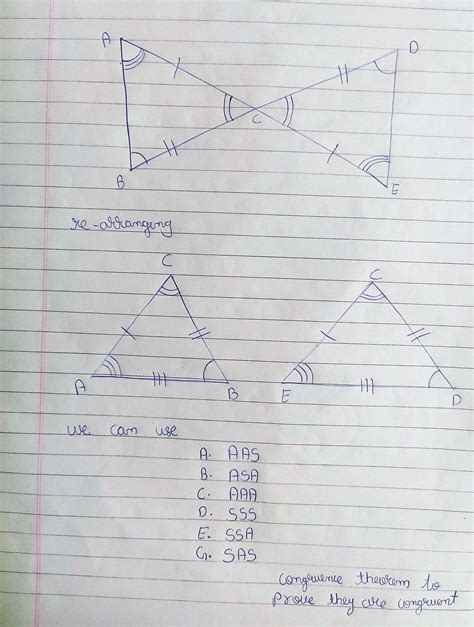 A
D
C
B
E
re-arranging
C
C
A
B
E
D
we can use
A. AAS
B. ASA
C. AAA
D. SSS
E. SSA
G. SAS
congruence theorem to
prove they are congruent